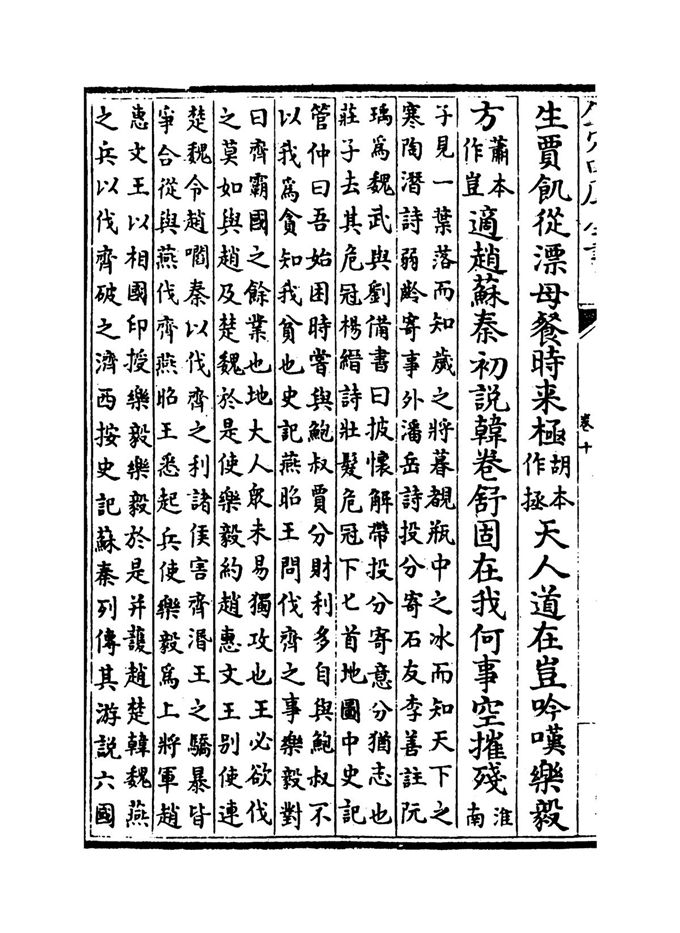 卷十
生賈飢從漂母餐時来極胡本作拯天人道在豈吟嘆樂毅
方蕭本作豈適趙蘇秦初說韓卷舒固在我何事空摧殘淮南
子見一葉落而知歲之將暮覩瓶中之冰而知天下之
寒陶潛詩弱齡寄事外潘岳詩投分寄石友李善註阮
瑀為魏武與劉備書曰披懷解帶投分寄意分猶志也
莊子去其危冠楊縉詩壯髮危冠下匕首地圖中史記
管仲曰吾始困時嘗與鮑叔賈分財利多自與鮑叔不
以我為貪知我貧也史記燕昭王問伐齊之事樂毅對
曰齊霸國之餘業也地大人衆未易獨攻也王必欲伐
之莫如與趙及楚魏於是使樂毅約趙惠文王别使連
楚魏令趙嚪秦以伐齊之利諸侯害齊湣王之驕暴皆
爭合從與燕伐齊燕昭王悉起兵使樂毅為上將軍趙
惠文王以相國印授樂毅樂毅於是并護趙楚韓魏燕
之兵以伐齊破之濟西按史記蘇秦列傳其游說六國